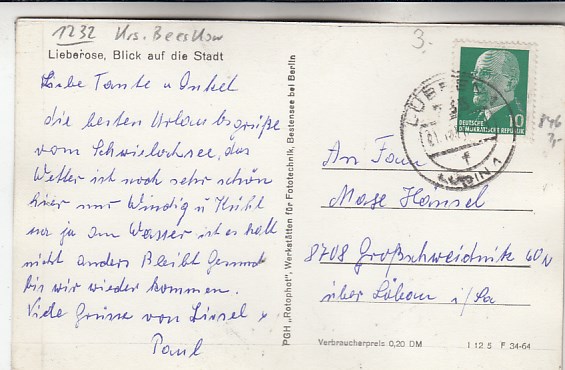 1232 Krs. Beeskow
3,-
Lieberose, Blick auf die Stadt
Liebe Tante u Onkel
die besten Urlaubsgrüße
vom Schwielochsee, das
Wetter ist noch sehr schön
hier nur Windig u Kühl
na ja am Wasser ist es halt
nicht anders Bleibt Gesund
bis wir wieder kommen.
Viele Grüsse von Liesel u
Paul
PGH „Rotophot", Werkstätten für Fototechnik, Bestensee bei Berlin
LÜBBEN
1
10
DEUTSCHE
DEMOKRATISCHE REPUBLIK
846
3,-
An Fam
Hansel
8708 Großschweidnitz 60
über Löbau i/Sa
Verbraucherpreis 0,20 DM
I 12 5 F 34-64